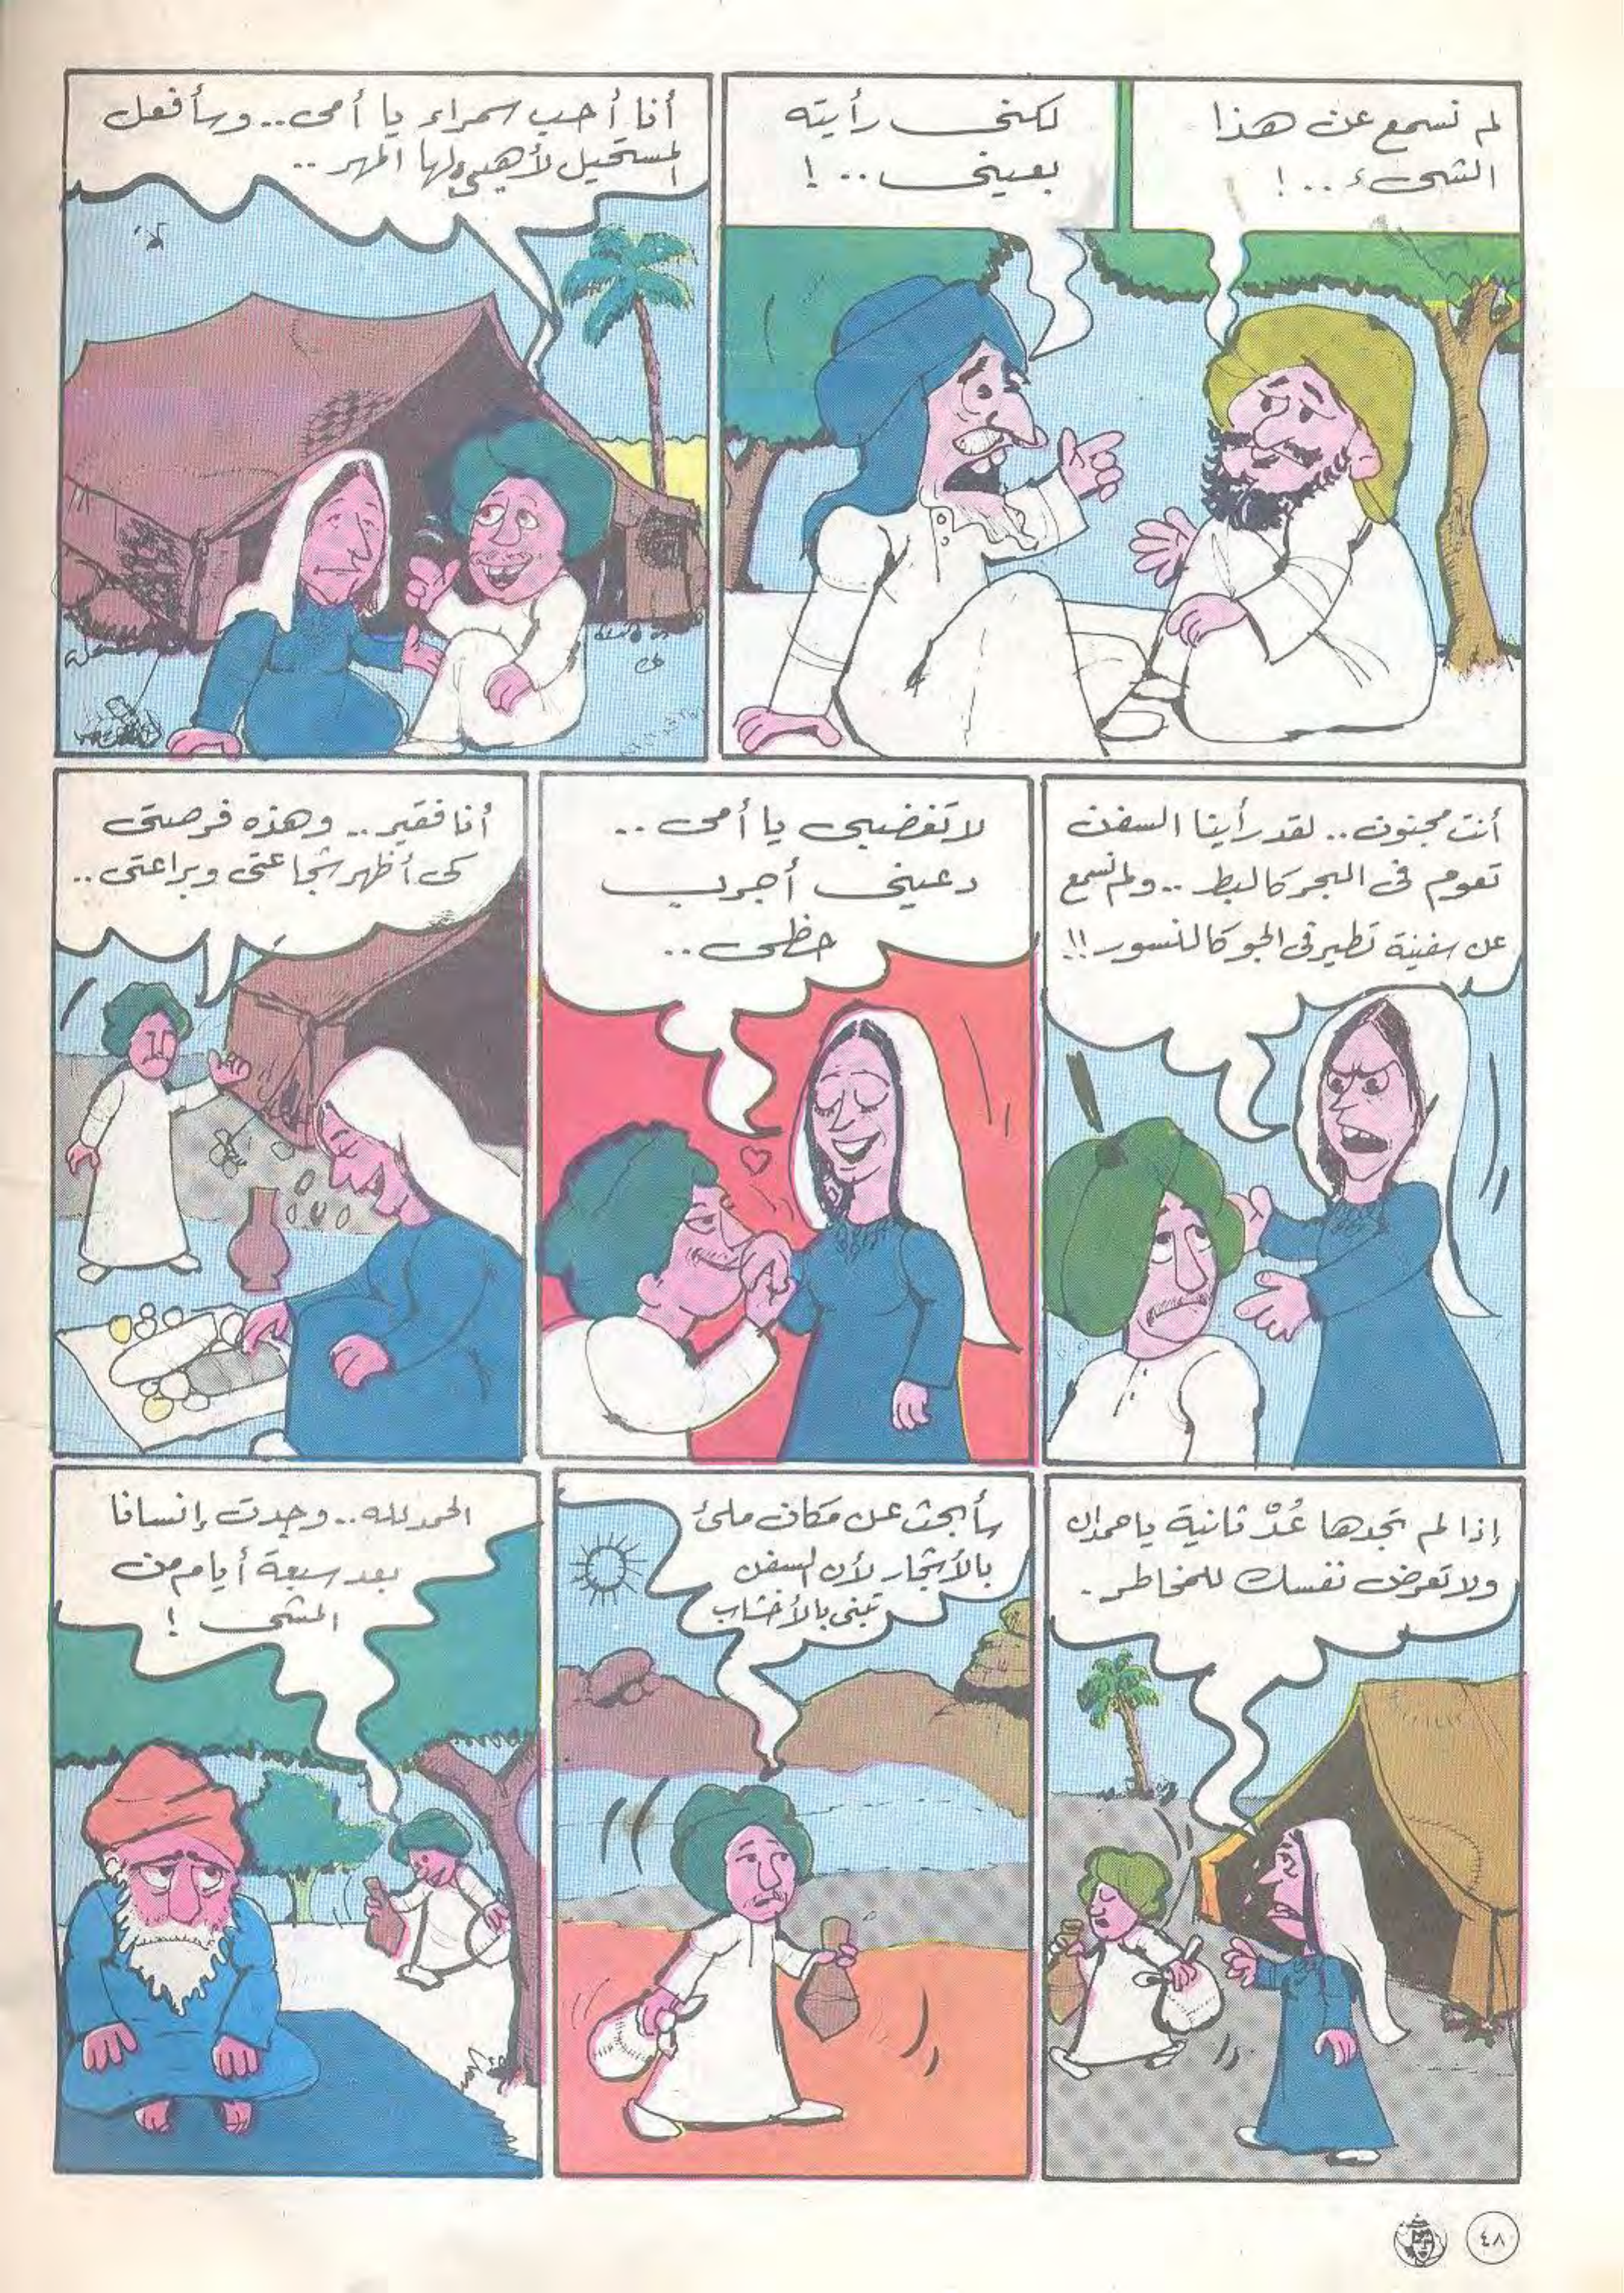 لم نسمع عن هذا
الشىء ..!
لكنى رأيته
بعينى ..!
أنا أحب سمراء يا أمى .. وسأفعل
المستحيل لأهيىء لها المهر ..
أنت مجنون .. لقد رأينا السفن
تعوم فى البحر كالبط .. ولم نسمع
عن سفينة تطير فى الجو كالنسور !!
لا تغضبى يا أمى ..
دعينى أجرب
حظى ..
أنا فقير .. وهذه فرصتى
كى أظهر شجاعتى وبراعتى ..
إذا لم تجدها عُدْ ثانية يا حمدان
ولا تعرض نفسك للمخاطر .
سأبحث عن مكان ملئ
بالأشجار لأن السفن
تبنى بالأخشاب
الحمد لله .. وجدت إنسانا
بعد سبعة أيام من
المشى !
٤٨